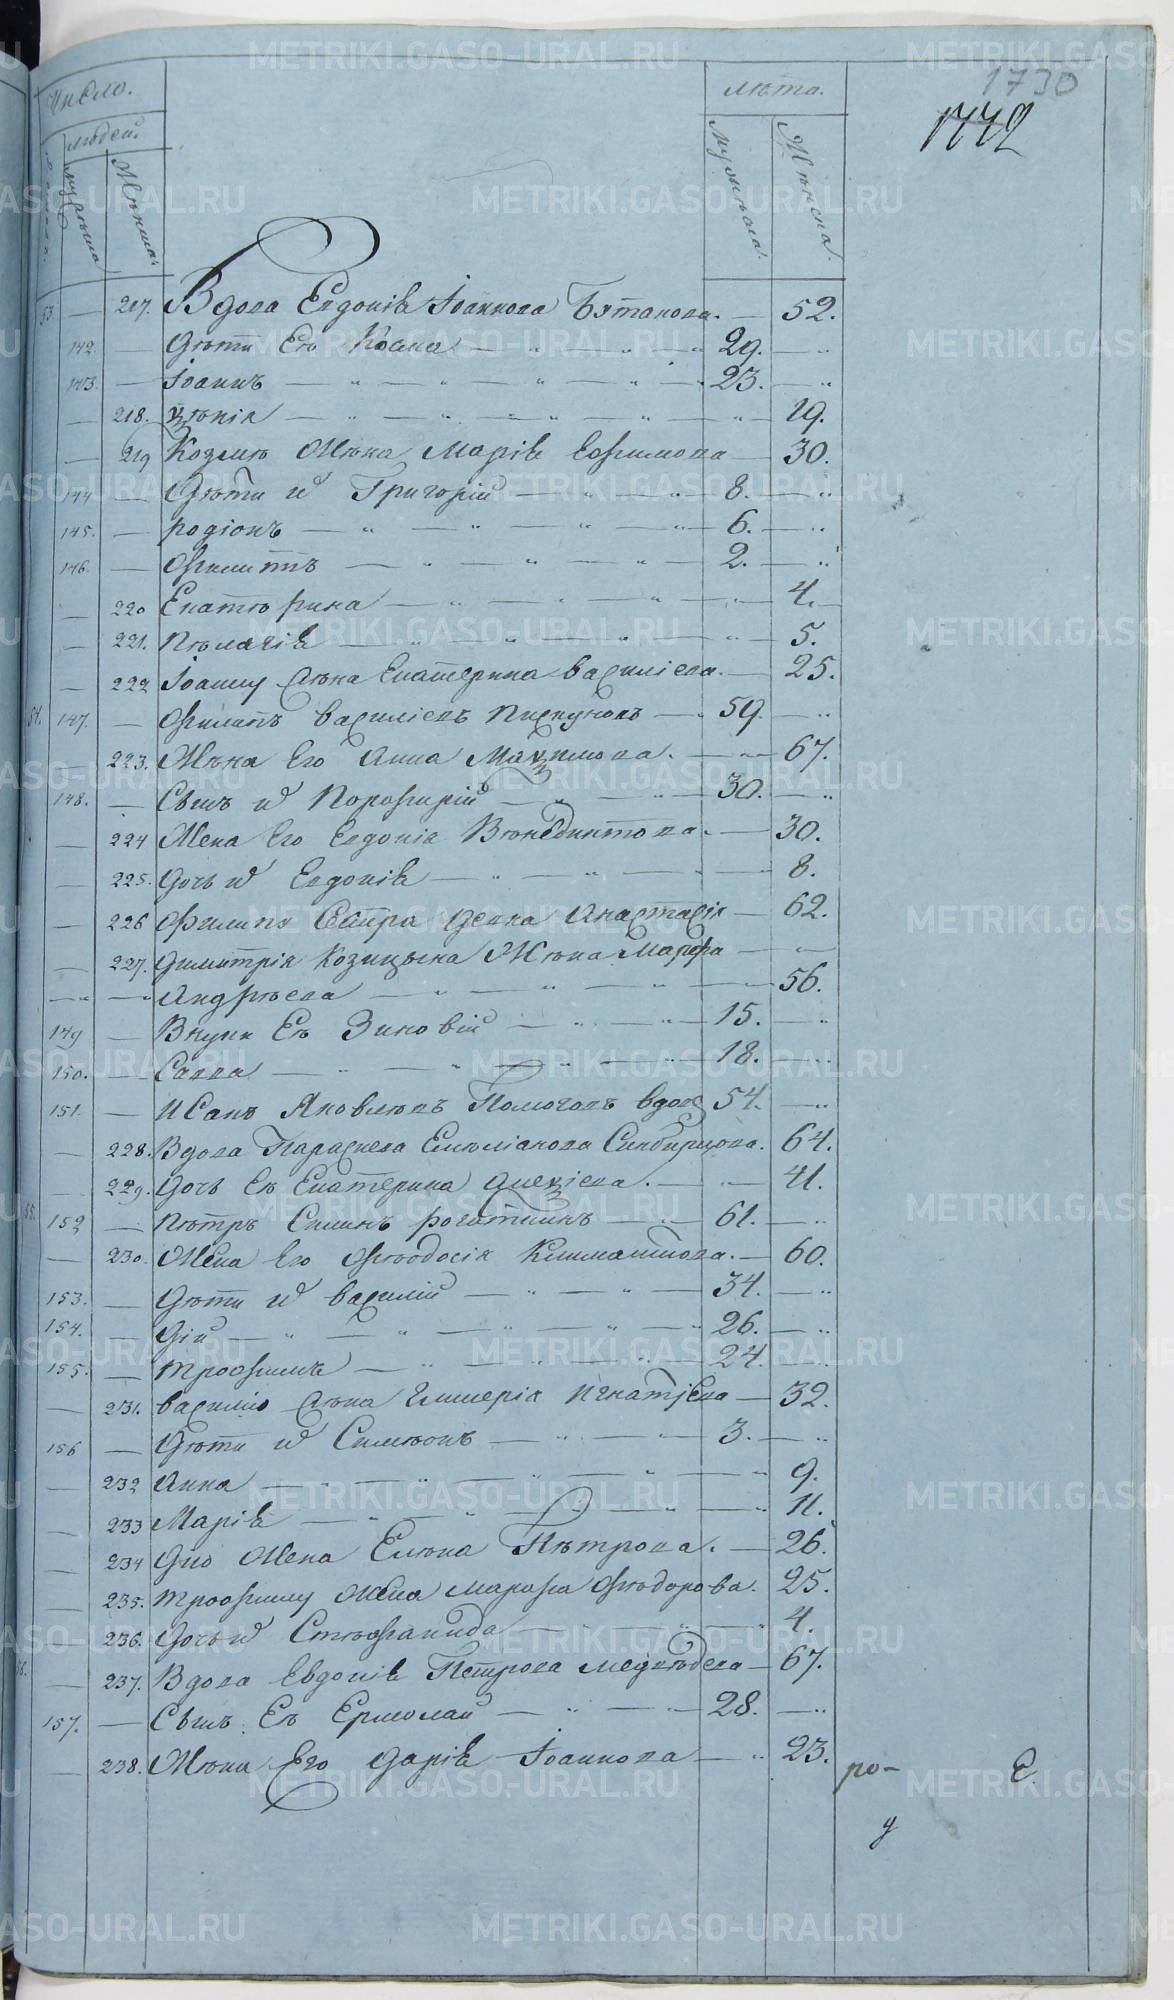 1730
1772
Число.
Лѣта.
людей
мужеска
женска
Мужеска.
Женска.
53. — 217. Вдова Евдокія Іоаннова — 52.
142. — Дѣти Ея Косма — 29. —
143. — Іоаннъ — 23. —
— 218. Ксѣнія — 19.
— 219 Козмѣ Жѣна Марія Ефимова — 30.
144 — Дѣти и Григорій — 8. —
145. — родіонъ — 6. —
146. — Филиппъ — 2. —
— 220 Екатѣрина — 4.
— 221. Пѣлагія — 5.
— 222 Іоанну Жѣна Екатерина василіева. — 25.
54. 147. — Филипъ василіевъ Пискуновъ — 59. —
— 223. Жѣна Его Анна Маѯимова. — 67.
148. — Сынъ и Порфирій — 30. —
— 224 Жена Его Евдокія Вѣнедиктова. — 30.
— 225. Дочь и Евдокія — 8.
— 226 Филипу Сестра Анастасія — 62.
— 227. Димитрія Козицына Жѣна Марфа —
Андрѣева — 56.
149 — Внуки Ея Зиновій — 15. —
150. — Савва — 18. —
151. — Исакъ Яковлѣвъ вдовъ 54. —
— 228. Вдова Параскева Емѣліанова Синбирцова. 64.
— 229. Дочь Ея Екатерина Алеѯіева. — 41.
55. 152 — Пѣтръ Симинъ рогаткинъ — 61. —
— 230. Жена Его Фѣодосія Климантова. — 60.
153. — Дѣти и василій — 34. —
154. — Дій — 26. —
155. — трофимъ — 24. —
— 231. василію Жѣна Гликерія Игнатіева — 32.
156 — Дѣти и Симѣонъ — 3. —
— 232 Анна — 9.
— 233 Марія — 11.
— 234 Дію Жена Елѣна Пѣтрова. — 26.
— 235. трофиму Жена Марфа Фѣодорова. 25.
— 236. Дочь и Стѣфанида — 4.
56. — 237. Вдова Евдокія Петрова медвѣдева — 67.
157. — Сынъ Ея Ермолай — 28. —
— 238. Жѣна Его Дарія Іоаннова — 23.
ро- Е.
у
METRIKI.GASO-URAL.RU